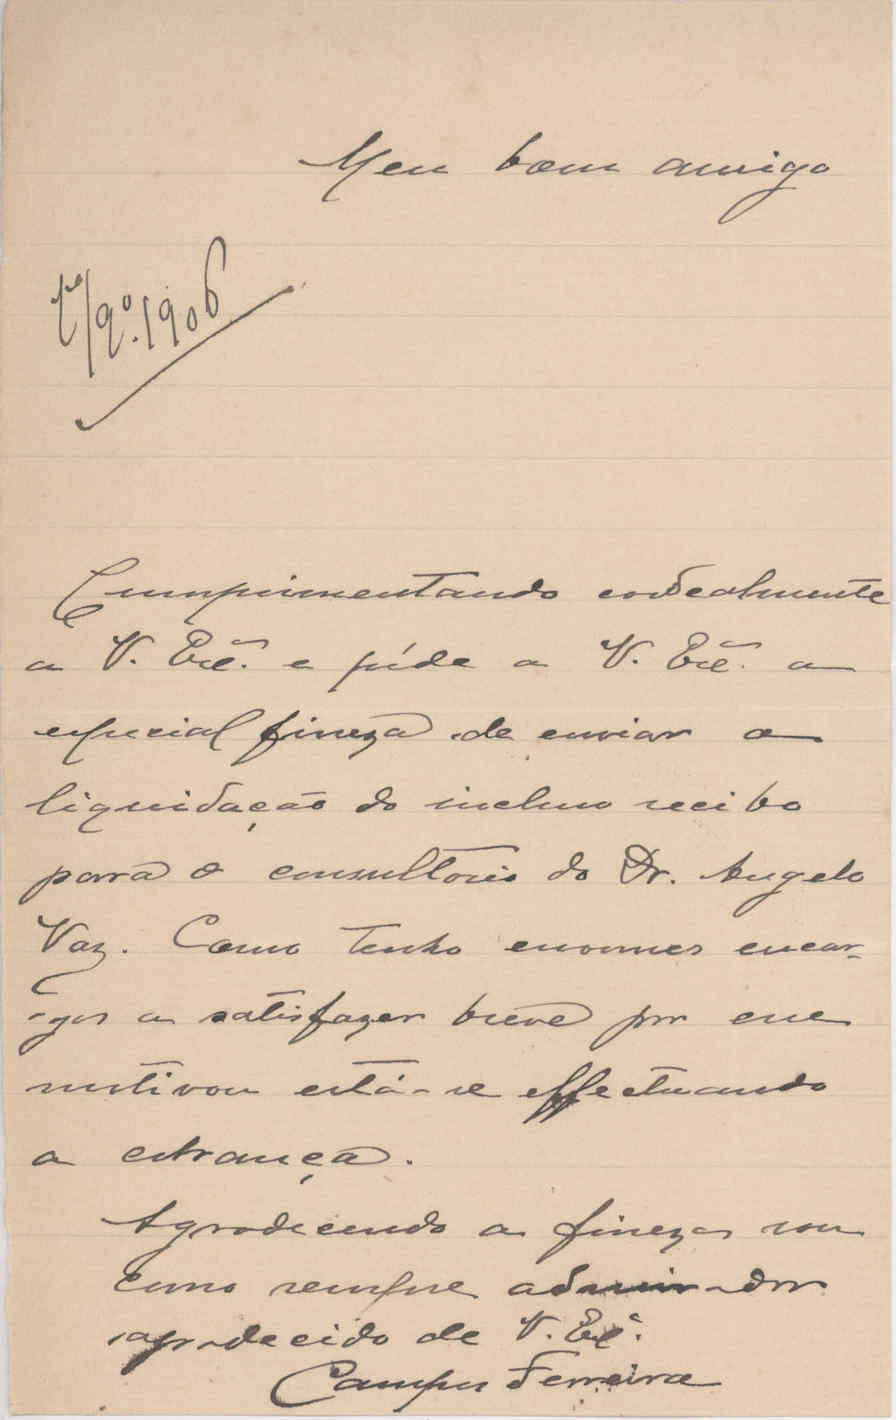 Meu bom amigo
1/9º.1906
Cumprimentando cordealmente
a V. Excª. e péde a V. Excª. a
especial fineza de enviar a
liquidação do incluso recibo
para o consultorio do Dr. Angelo
Vaz. Como tenho enormes encar-
-gos a satisfazer breve por esse
motivo está-se effectuando
a cobrança.
Agradecendo a fineza sou
como sempre admirador
agradecido de V. Exª.
Campos Ferreira